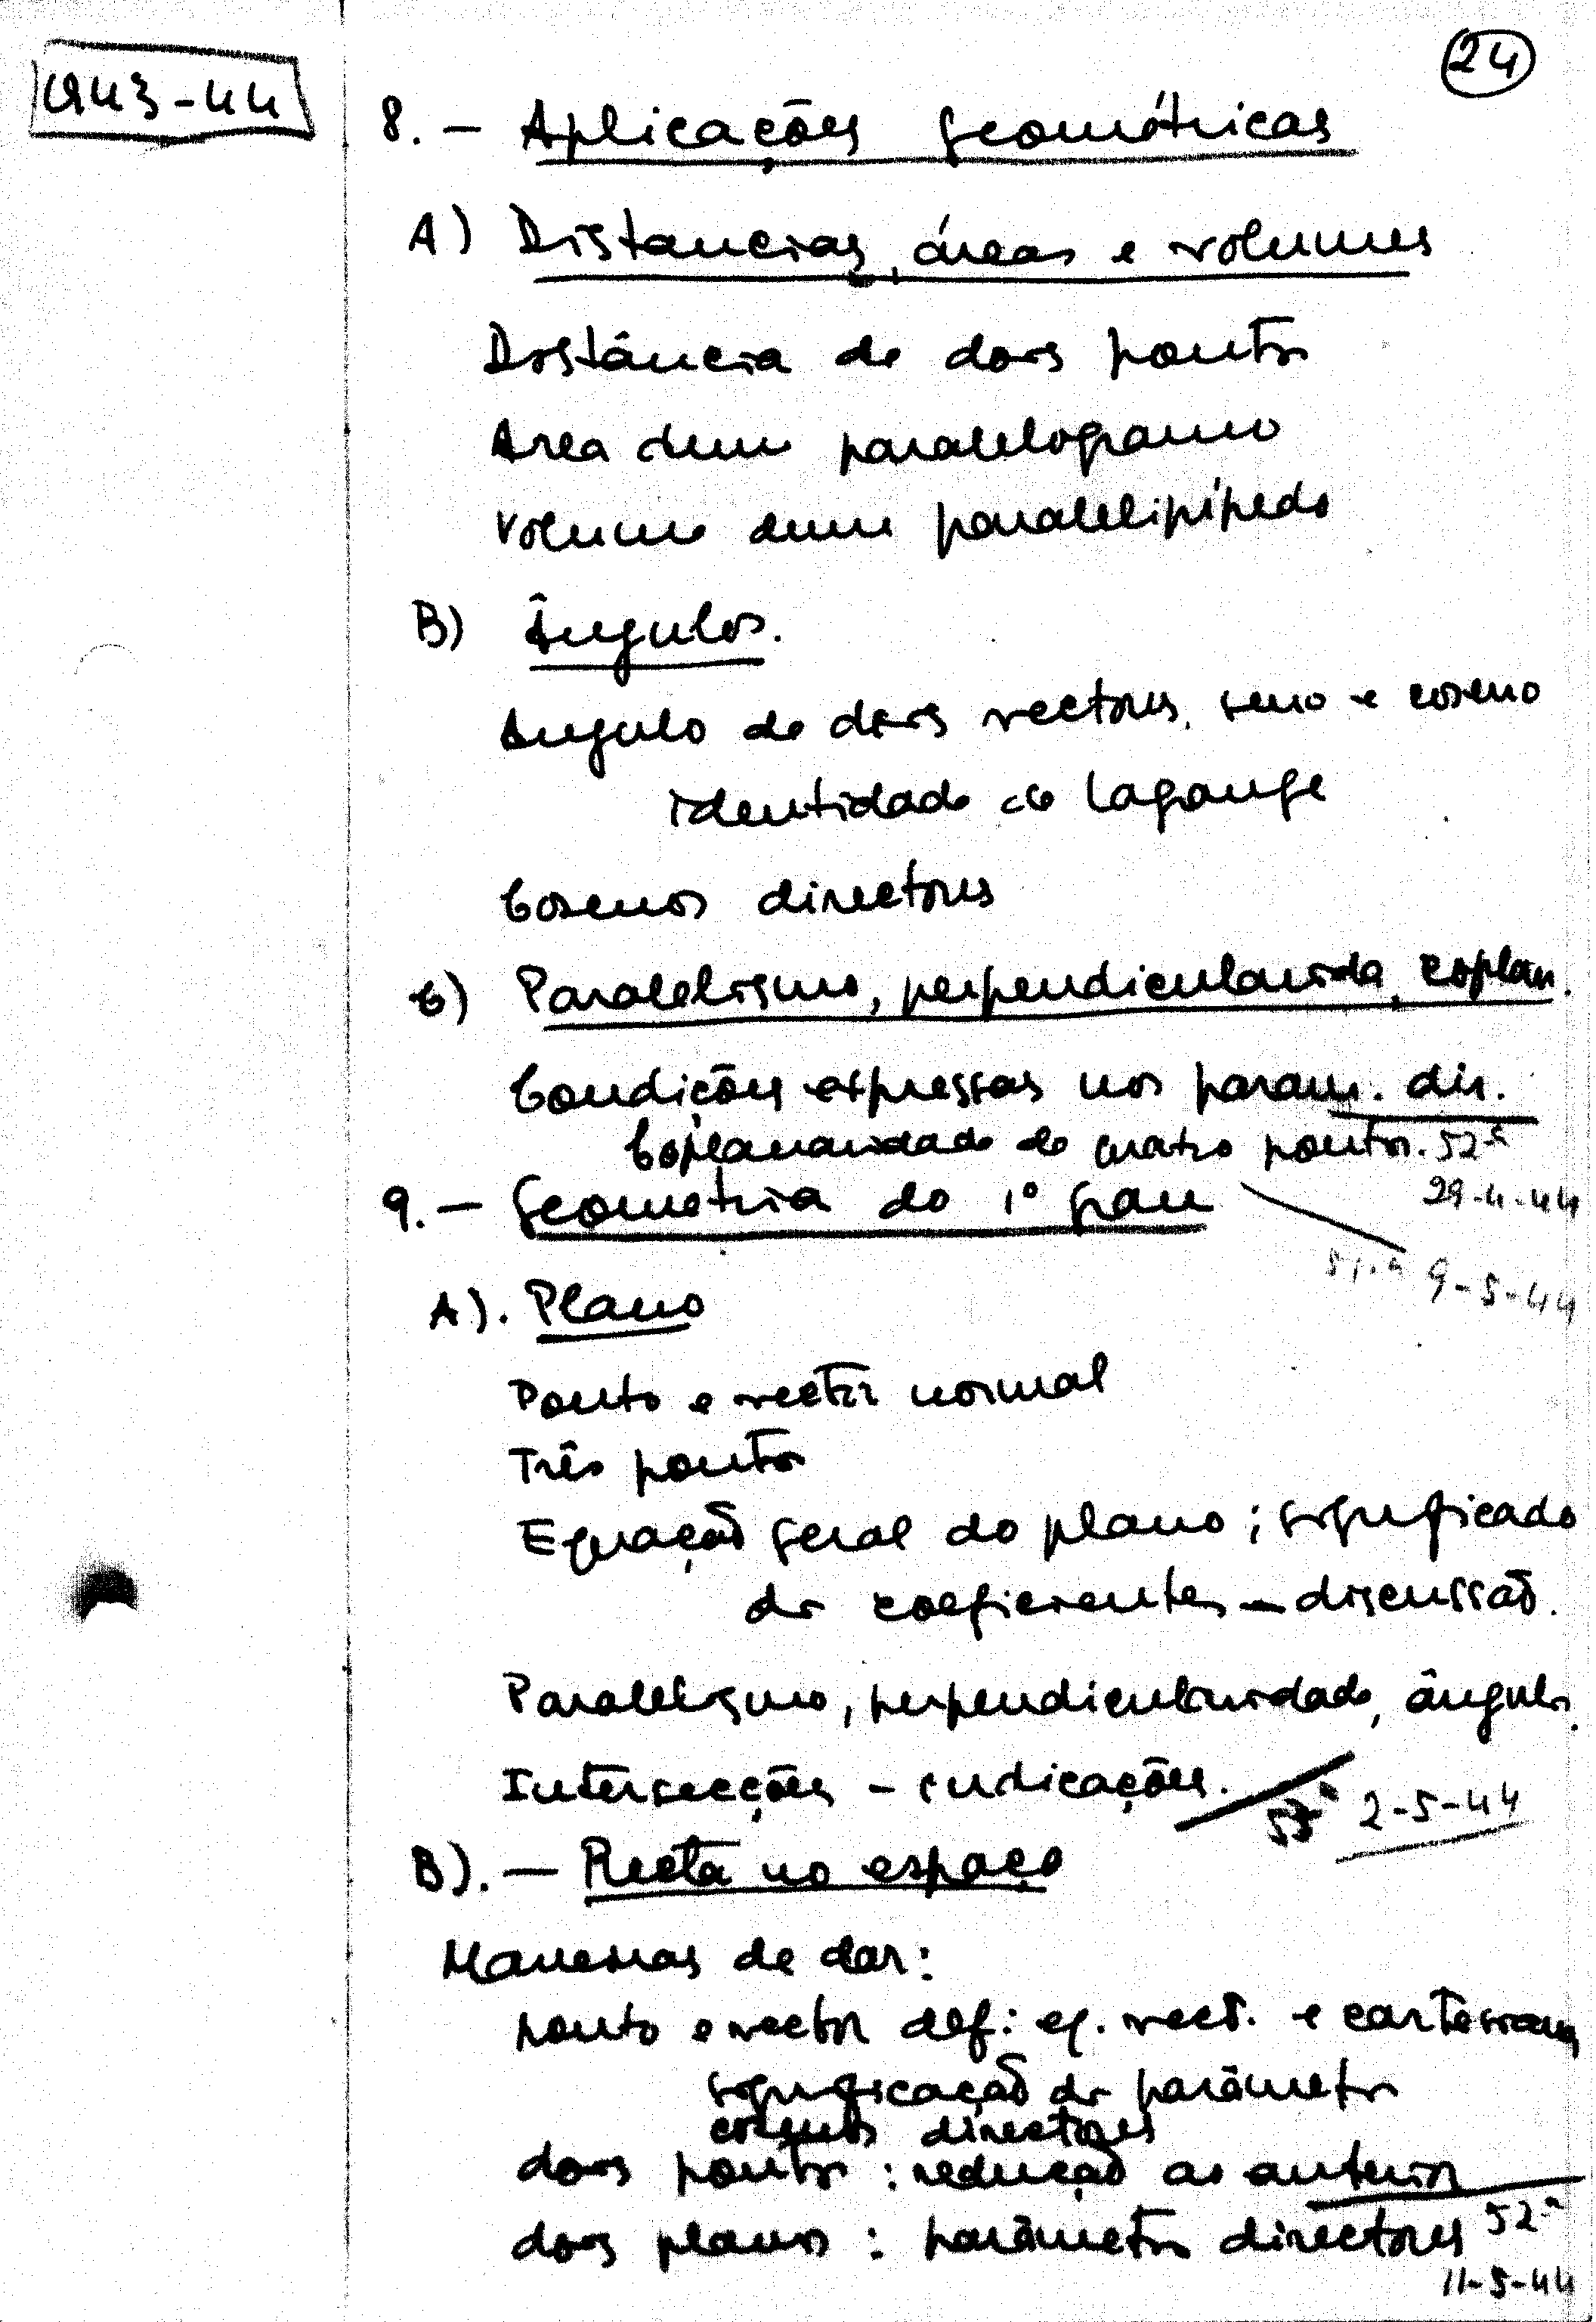 24
1943-44
8. — Aplicações geométricas
A) Distancias, áreas e volumes
Distância de dois pontos
Area dum paralelogramo
Volume dum paralelipípedo
B) Ângulos.
Angulo de dois vectores, seno e coseno
identidade de Lagrange
Cosenos directores
C) Paralelismo, perpendicularida, coplan.
Condições expressas nos param. dir.
Coplanaridade de quatro pontos. 52ª
29-4-44
9. — Geometria do 1º grau
51.ª 9-5-44
A). Plano
Ponto e vector normal
Três pontos
Equação geral do plano; significado
dos coeficientes — discussão.
Paralelismo, perpendicularidade, ângulos.
Intersecções - indicações.
53ª 2-5-44
B). — Recta no espaço
Maneiras de dar:
ponto e vector def: eq. vect. e cartesiana
significação dos parâmetros
cosenos directores
dois pontos : redução ao anterior
52.ª
dois planos : parâmetros directores
11-5-44